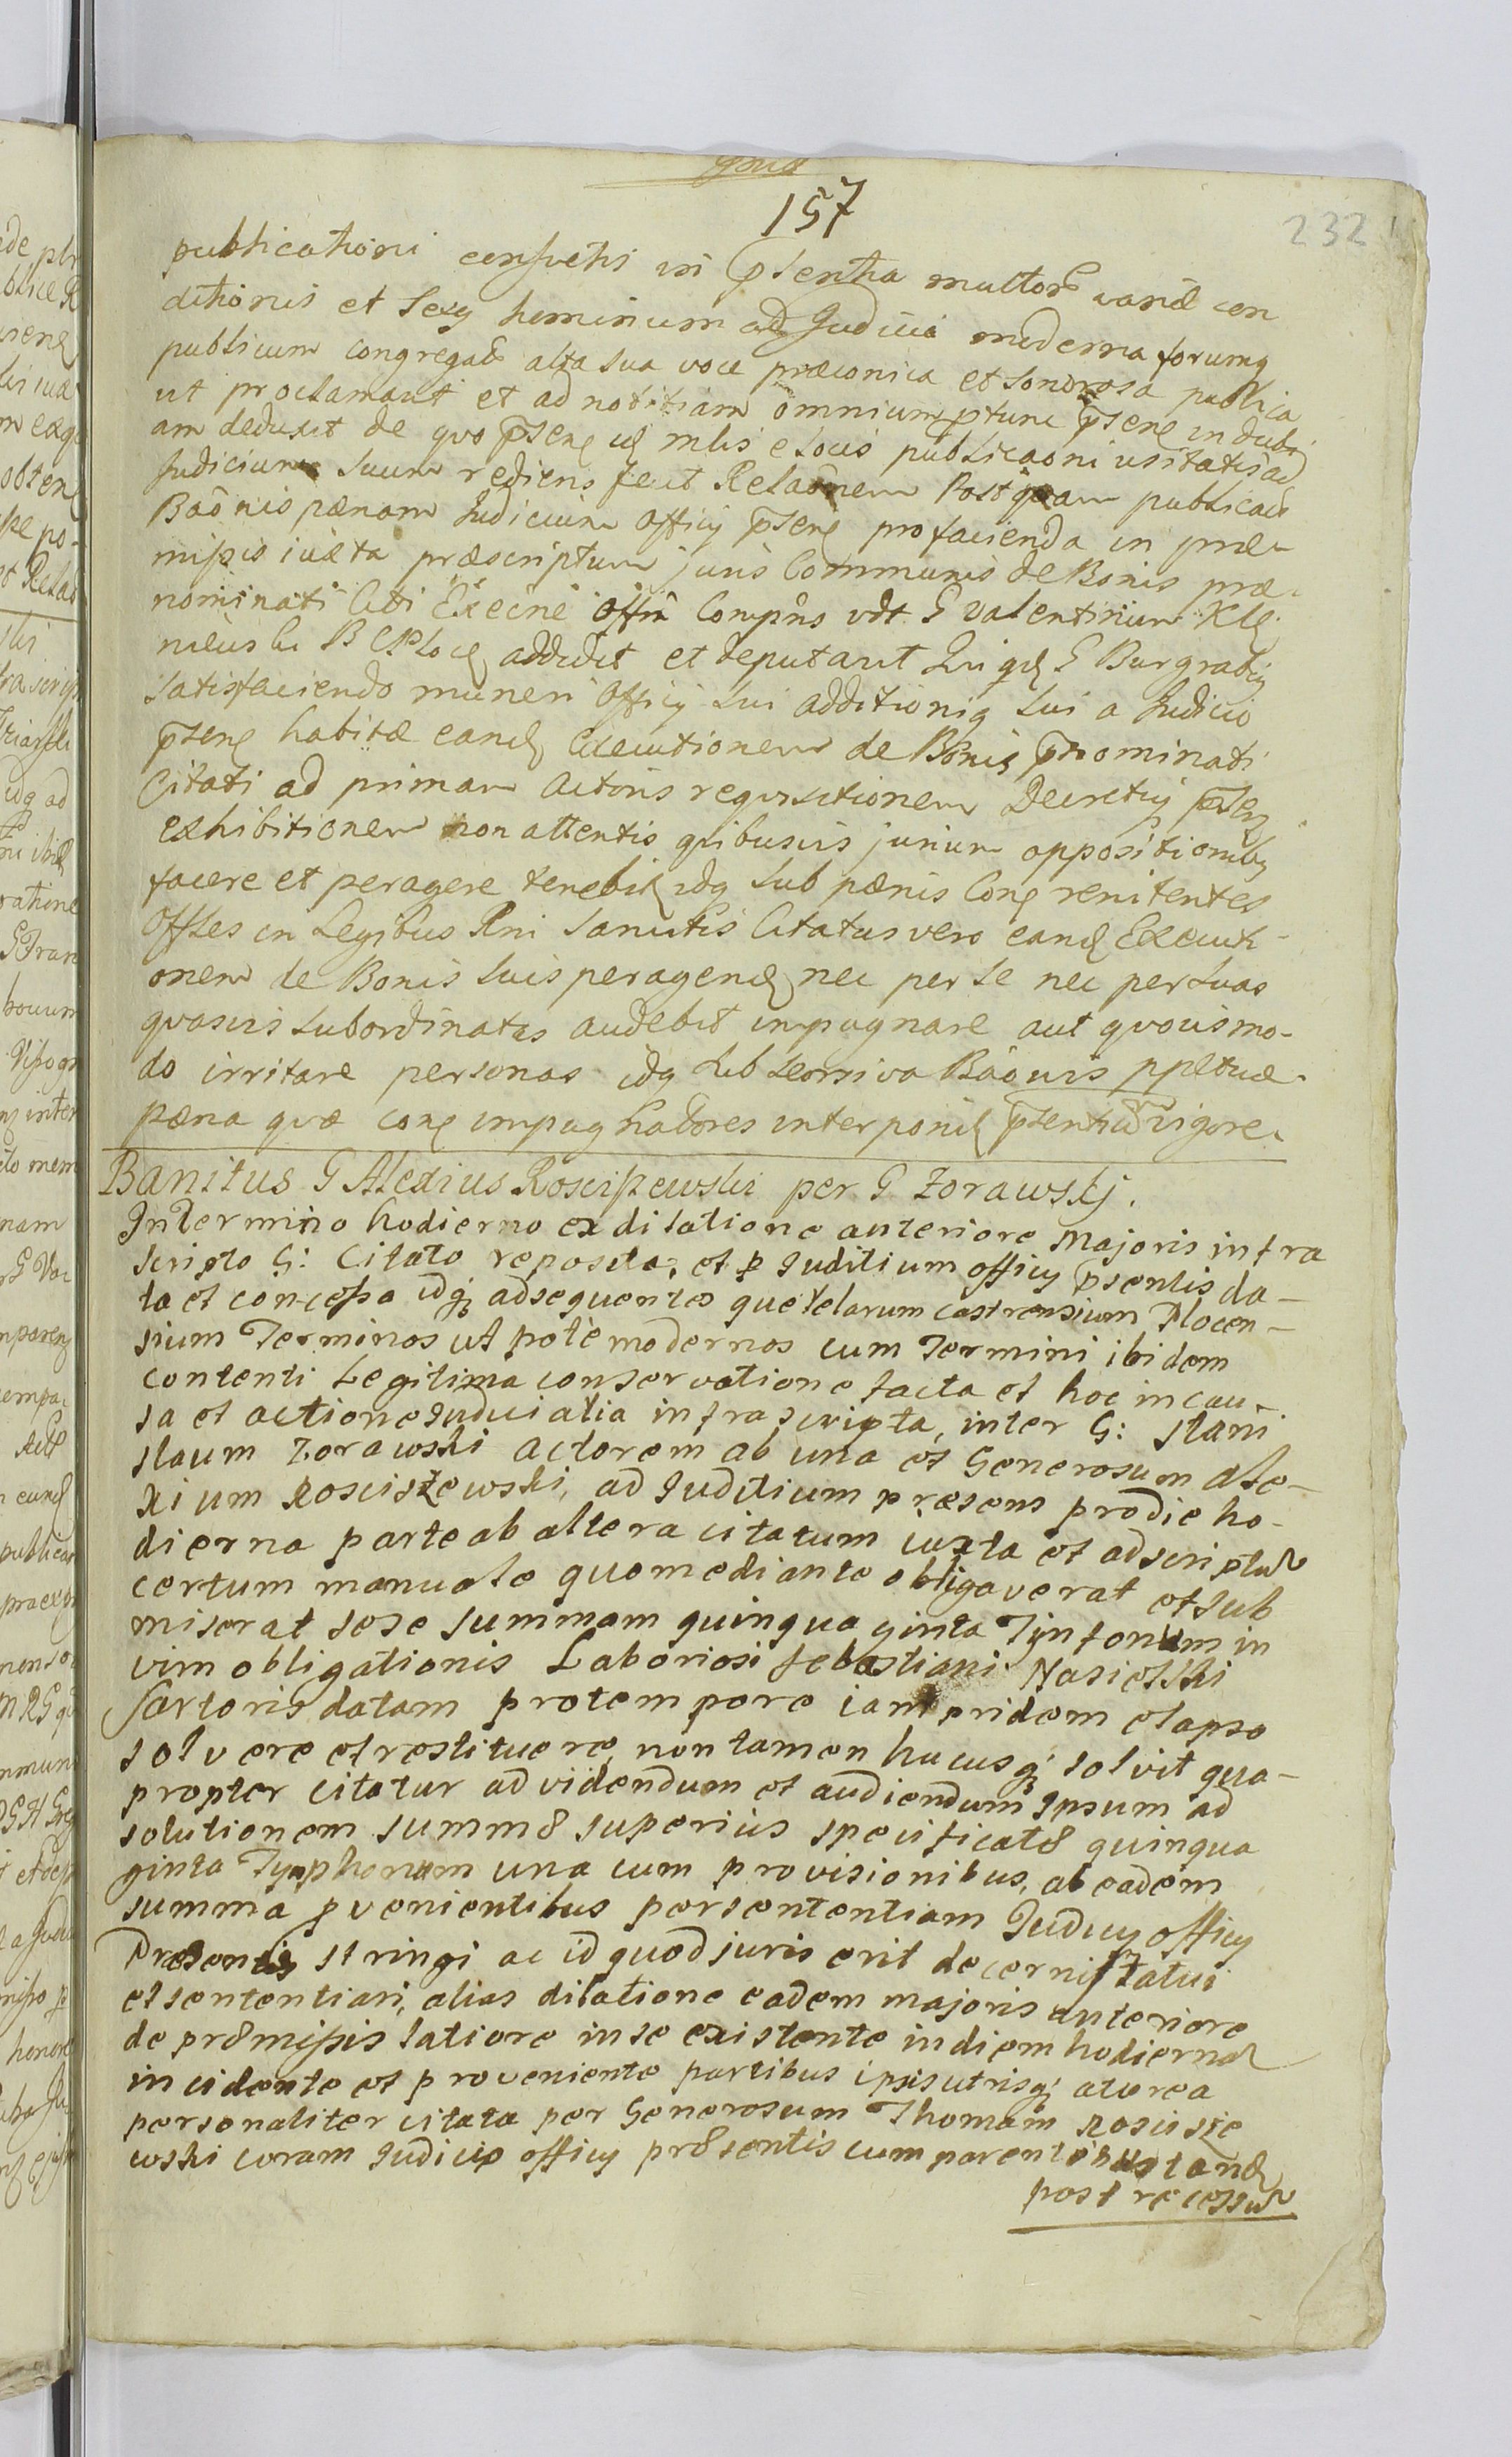 157
232
publicationi consvetis in pſentia multorũ variæ con
ditionis et Sexq hominum ad Judicia moderna forumq
publicum congregatõ alta sua voce præconica et sonorosa publica
ut proclamavit et ad notitiam omnium ptunc pſenẽ indubi
am deduxit de qvo pſenẽ  mlis e locis publicaõni usitatis ad
Judicium suum rediens fecit Relaõnem Postqvam publicatã
Baõnis pænam Judicium Officij pſenẽ pro facienda in præ
miſsis iuxta præscriptum juris Communis de Bonis præ
nominati Citi Exẽcnẽ Offm Compñs vdt G Valentinum Kle
niewski B Ploc addidit et deputavit Qui qd G Burgrabij
satisfaciendo muneri Officij sui additioniq sui a Judicio
pſenẽ habitæ eandẽ Executionem de Bonis pnominati
Citati ad primam Actoris reqvisitionem Decretiq pſen
exhibitionem non attentis qvibusvis jurium oppositionibq
facere et peragere tenebit idq sub pænis Conẽ renitentes
Offles in Legibus Rni sancitis Citatus vero eandẽ Executi-
onem de Bonis suis peragendẽ nec per se nec per suas
qvasvis subordinatas audebit impugnare aut qvovismo-
do irritare personas idq sub seorsiva Baõnis ppetuæ
pæna qvæ conẽ impugnatores interponit pſentiũ vigore
Banitus G Alexius Rosciſzewski per G Zorawskj.
In termino hodierno ex dilatione anteriore Majoris infra
scripto G: Citato reposita, et p Juditium officij pſentis da-
ta et conceſsa idq; ad sequentes querelarum castrensium Plocen-
sium Terminos ut pote modernos cum Termini ibidem
contenti Legitima conservatione facta et hoc in cau-
sa et actione Judicialia infra scripta, inter G: Stani
slaum Zorawski Actorem ab una et Generosum Ale-
xium Rosciszewski, ad Juditium præsens pro die ho-
dierna parte ab altera citatum iuxta et ad scriptũ
certum manuale quo mediante obligaverat et sub
miserat sese summam quinqua ginta Tynfonum in
vim obligationis Laboriosi Sebastiani Nasielski
Sartoris datam pro tempore iam pridem elapso
solvere et restituere, non tamen hucusq; solvit qua-
propter citatur ad videndum et audiendum Ipsum ad
solutionem summæ superius specificatæ quinqua
ginta Tynphonum una cum provisionibus, ab eadem
summa pvenientibus per sententiam Judicij officij
Præsentis stringi ac id quod juris erit decerni statui
et sententiari, alias dilatione eadem majoris anteriore
de præmiſsis latiore in se existente in diem hodiernã
incidente et proveniente partibus ipsis utrisq; at verea
personaliter citata per Generosum Thomam Roscisze
wski coram Judicio officij præsentis cum parentibus tandẽ
post recessũ